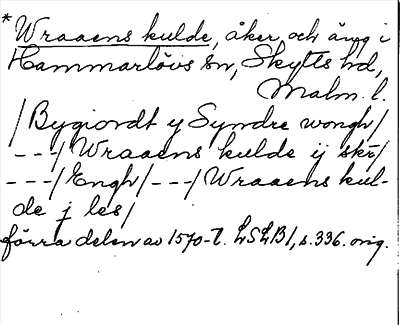 * Wraaens kulde, åker och äng i
Hammarlövs sn, Skytts hd,
Malm. l.
/Bygiordt y Syndre wongh/
---/Wraaens kulde ij skr/
---/Engh/---/Wraaens kul-
de j les/
förra delen av 1570-t. LSLB1, s. 336. orig.